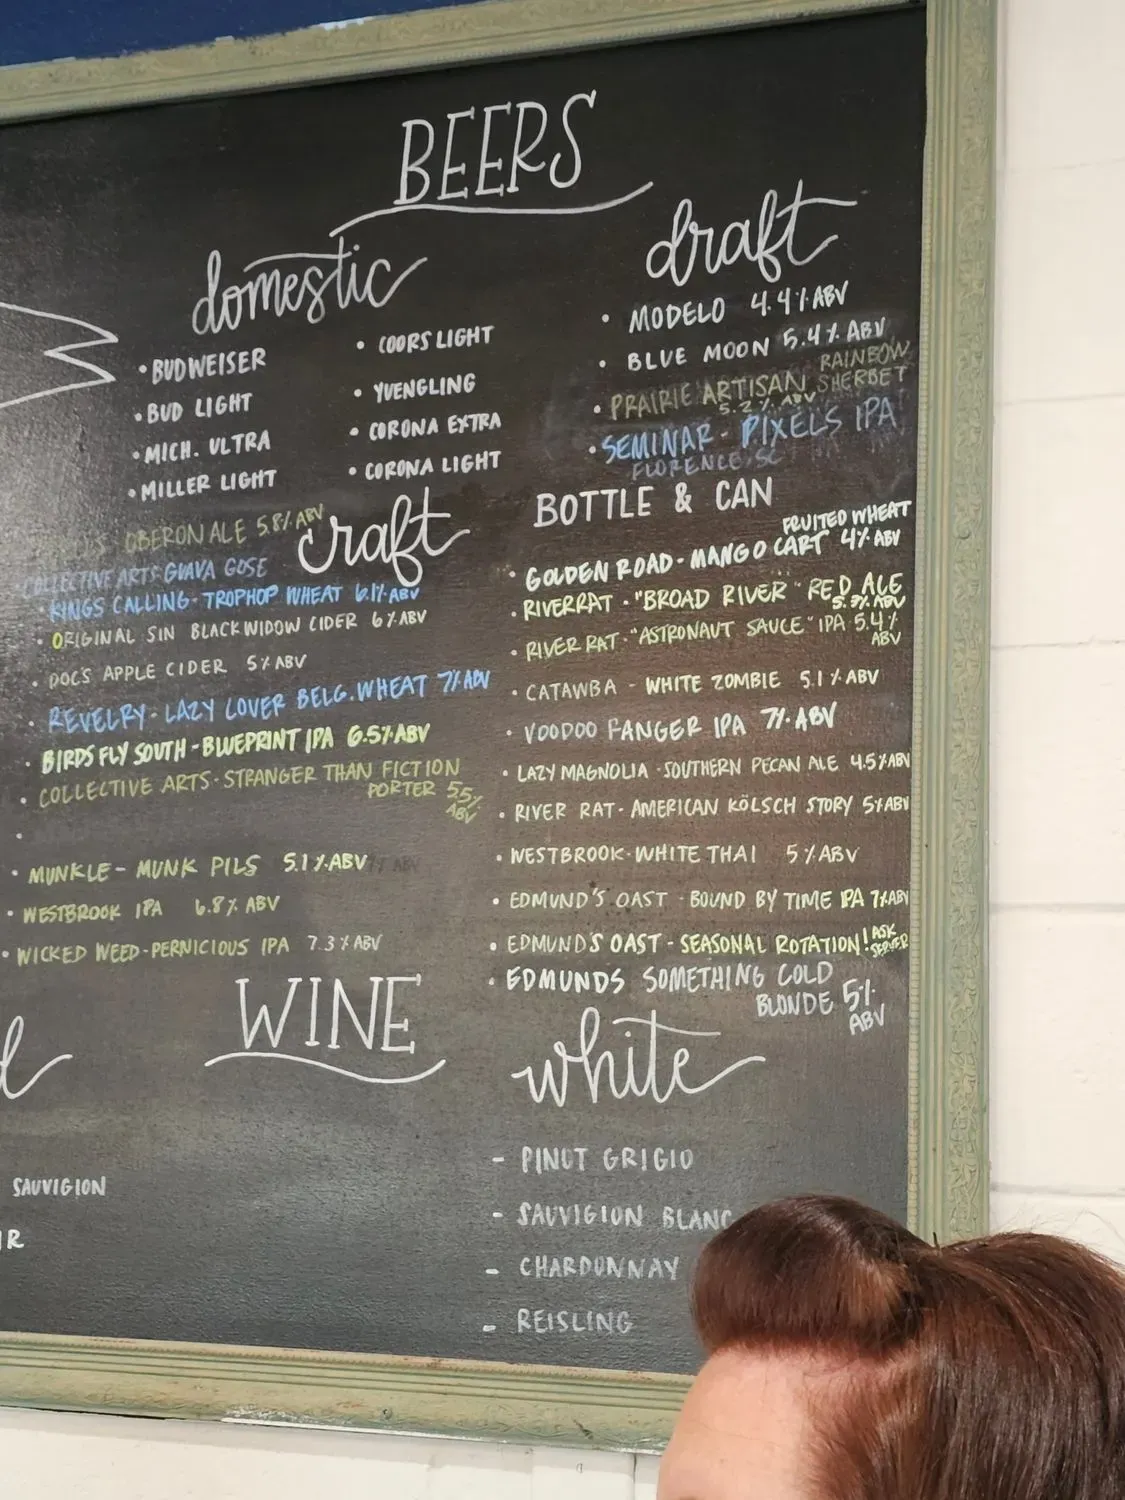 BEERS
domestic
• BUDWEISER
• BUD LIGHT
• MICH. ULTRA
• MILLER LIGHT
• COORS LIGHT
• YUENGLING
• CORONA EXTRA
• CORONA LIGHT
draft
• MODELO 4.4% ABV
• BLUE MOON 5.4% ABV
• PRAIRIE ARTISAN RAINBOW SHERBET
5.2% ABV
• SEMINAR - PIXELS IPA
FLORENCE, SC
craft
OBERON ALE 5.8% ABV
COLLECTIVE ARTS GUAVA GOSE
• KINGS CALLING - TROPHOP WHEAT 6.1% ABV
• ORIGINAL SIN BLACK WIDOW CIDER 6% ABV
• DOC'S APPLE CIDER 5% ABV
• REVELRY - LAZY LOVER BELG. WHEAT 7% ABV
• BIRDS FLY SOUTH - BLUEPRINT IPA 6.5% ABV
• COLLECTIVE ARTS - STRANGER THAN FICTION
PORTER 5.5%
ABV
•
• MUNKLE - MUNK PILS 5.1% ABV
• WESTBROOK IPA 6.8% ABV
• WICKED WEED - PERNICIOUS IPA 7.3% ABV
BOTTLE & CAN
FRUITED WHEAT
• GOLDEN ROAD - MANGO CART 4% ABV
• RIVERRAT - "BROAD RIVER" RED ALE
5.3% ABV
• RIVER RAT - "ASTRONAUT SAUCE" IPA 5.4%
ABV
• CATAWBA - WHITE ZOMBIE 5.1% ABV
• VOODOO RANGER IPA 7% ABV
• LAZY MAGNOLIA - SOUTHERN PECAN ALE 4.5% ABV
• RIVER RAT - AMERICAN KÖLSCH STORY 5% ABV
• WESTBROOK - WHITE THAI 5% ABV
• EDMUND'S OAST - BOUND BY TIME IPA 7% ABV
• EDMUND'S OAST - SEASONAL ROTATION! ASK
SERVER
• EDMUNDS SOMETHING COLD
BLONDE 5%
ABV
WINE
SAUVIGION
white
- PINOT GRIGIO
- SAUVIGION BLANC
- CHARDONNAY
- REISLING